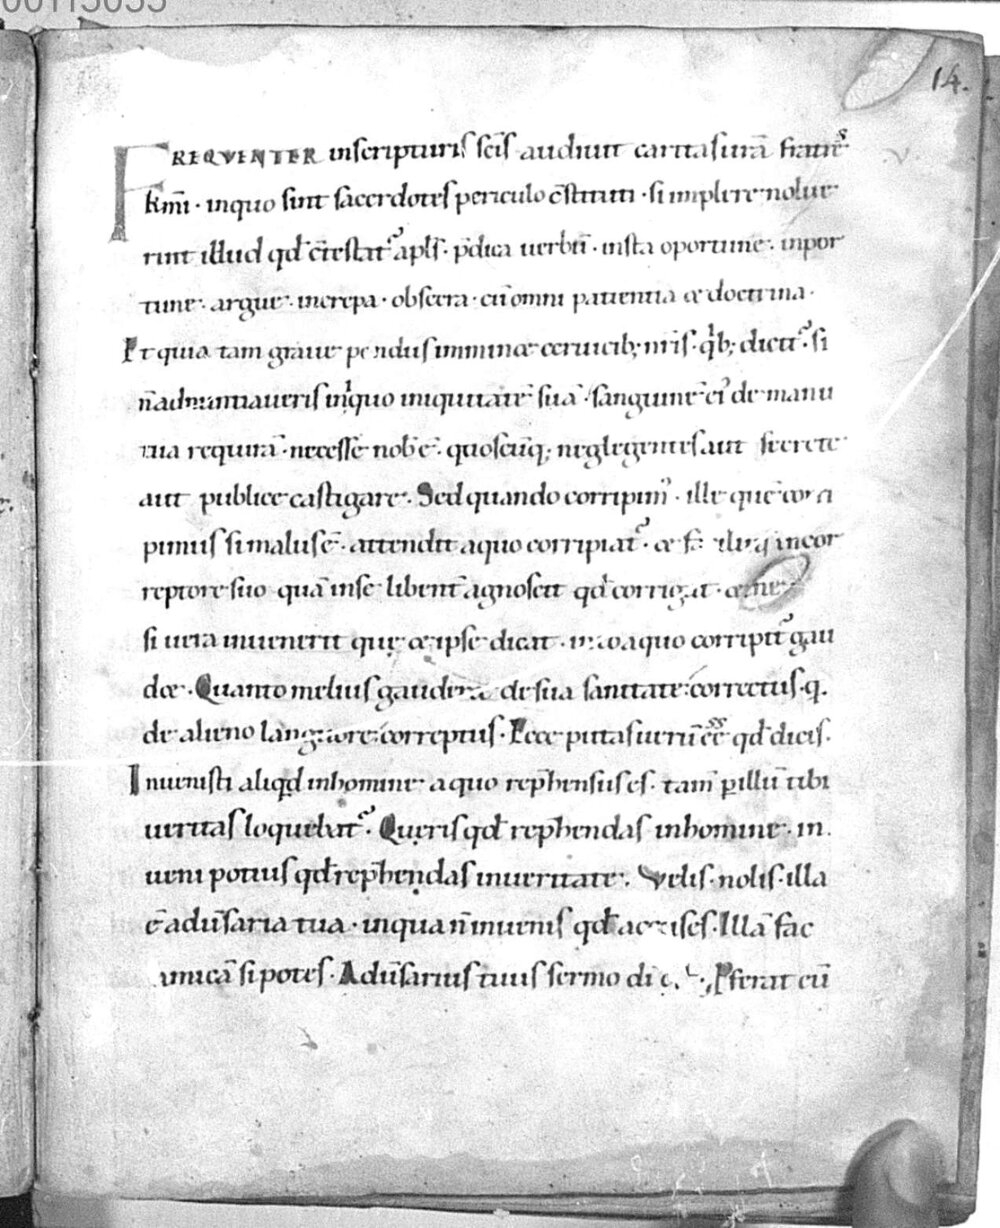 00115055
14.
FREQVENTER inscripturis scīs audiuit caritas urā fratrēs
km̄i · inquo sint sacerdotes periculo c̄stituti · si implere nolue
rint illud qđ c̄testat᷒ apłs · p̄dica uerbū · insta oportune · inpor
tune · argue · increpa · obsecra · cū omni patientia & doctrina ·
Et quia tam graue pondus imminæ ceruicib; nr̄is · qͥb; dicit᷒ · si
n̄ adnuntiaueris inͥquo iniquitatē suā · sanguinē ei᷒ de manu
tua requirā · necesse nob̄ ē · quoscūq; neglegentes aut secrete
aut publice castigare · Sed quando corripim᷒ · ille quē corri
pimus si malus ē · attendit aquo corripiat᷒ · &
reptore suo quā inse libent̄ agnoscit qđ corrigat · &
si uera inuenerit quę & ipse dicat · aquo corripit᷒ gau
d& · Quanto melius gauder& de sua sanitate correctus · q̄
de alieno languore correptus · Ecce putas uerū eē qđ dicis ·
Inuenisti aliqđ inhomine aquo rephensus es · tam̄ ꝑ illū tibi
ueritas loquebat᷒ · Queris qđ rephendas inhomine · in
ueni potius qđ rephendas inueritate · Velis · nolis · illa
ē adūsaria tua · inqua n̄ inuenis qđ accuses · Illā fac
amicā si potes · Adūsarius tuus sermo dī · Pferat eū